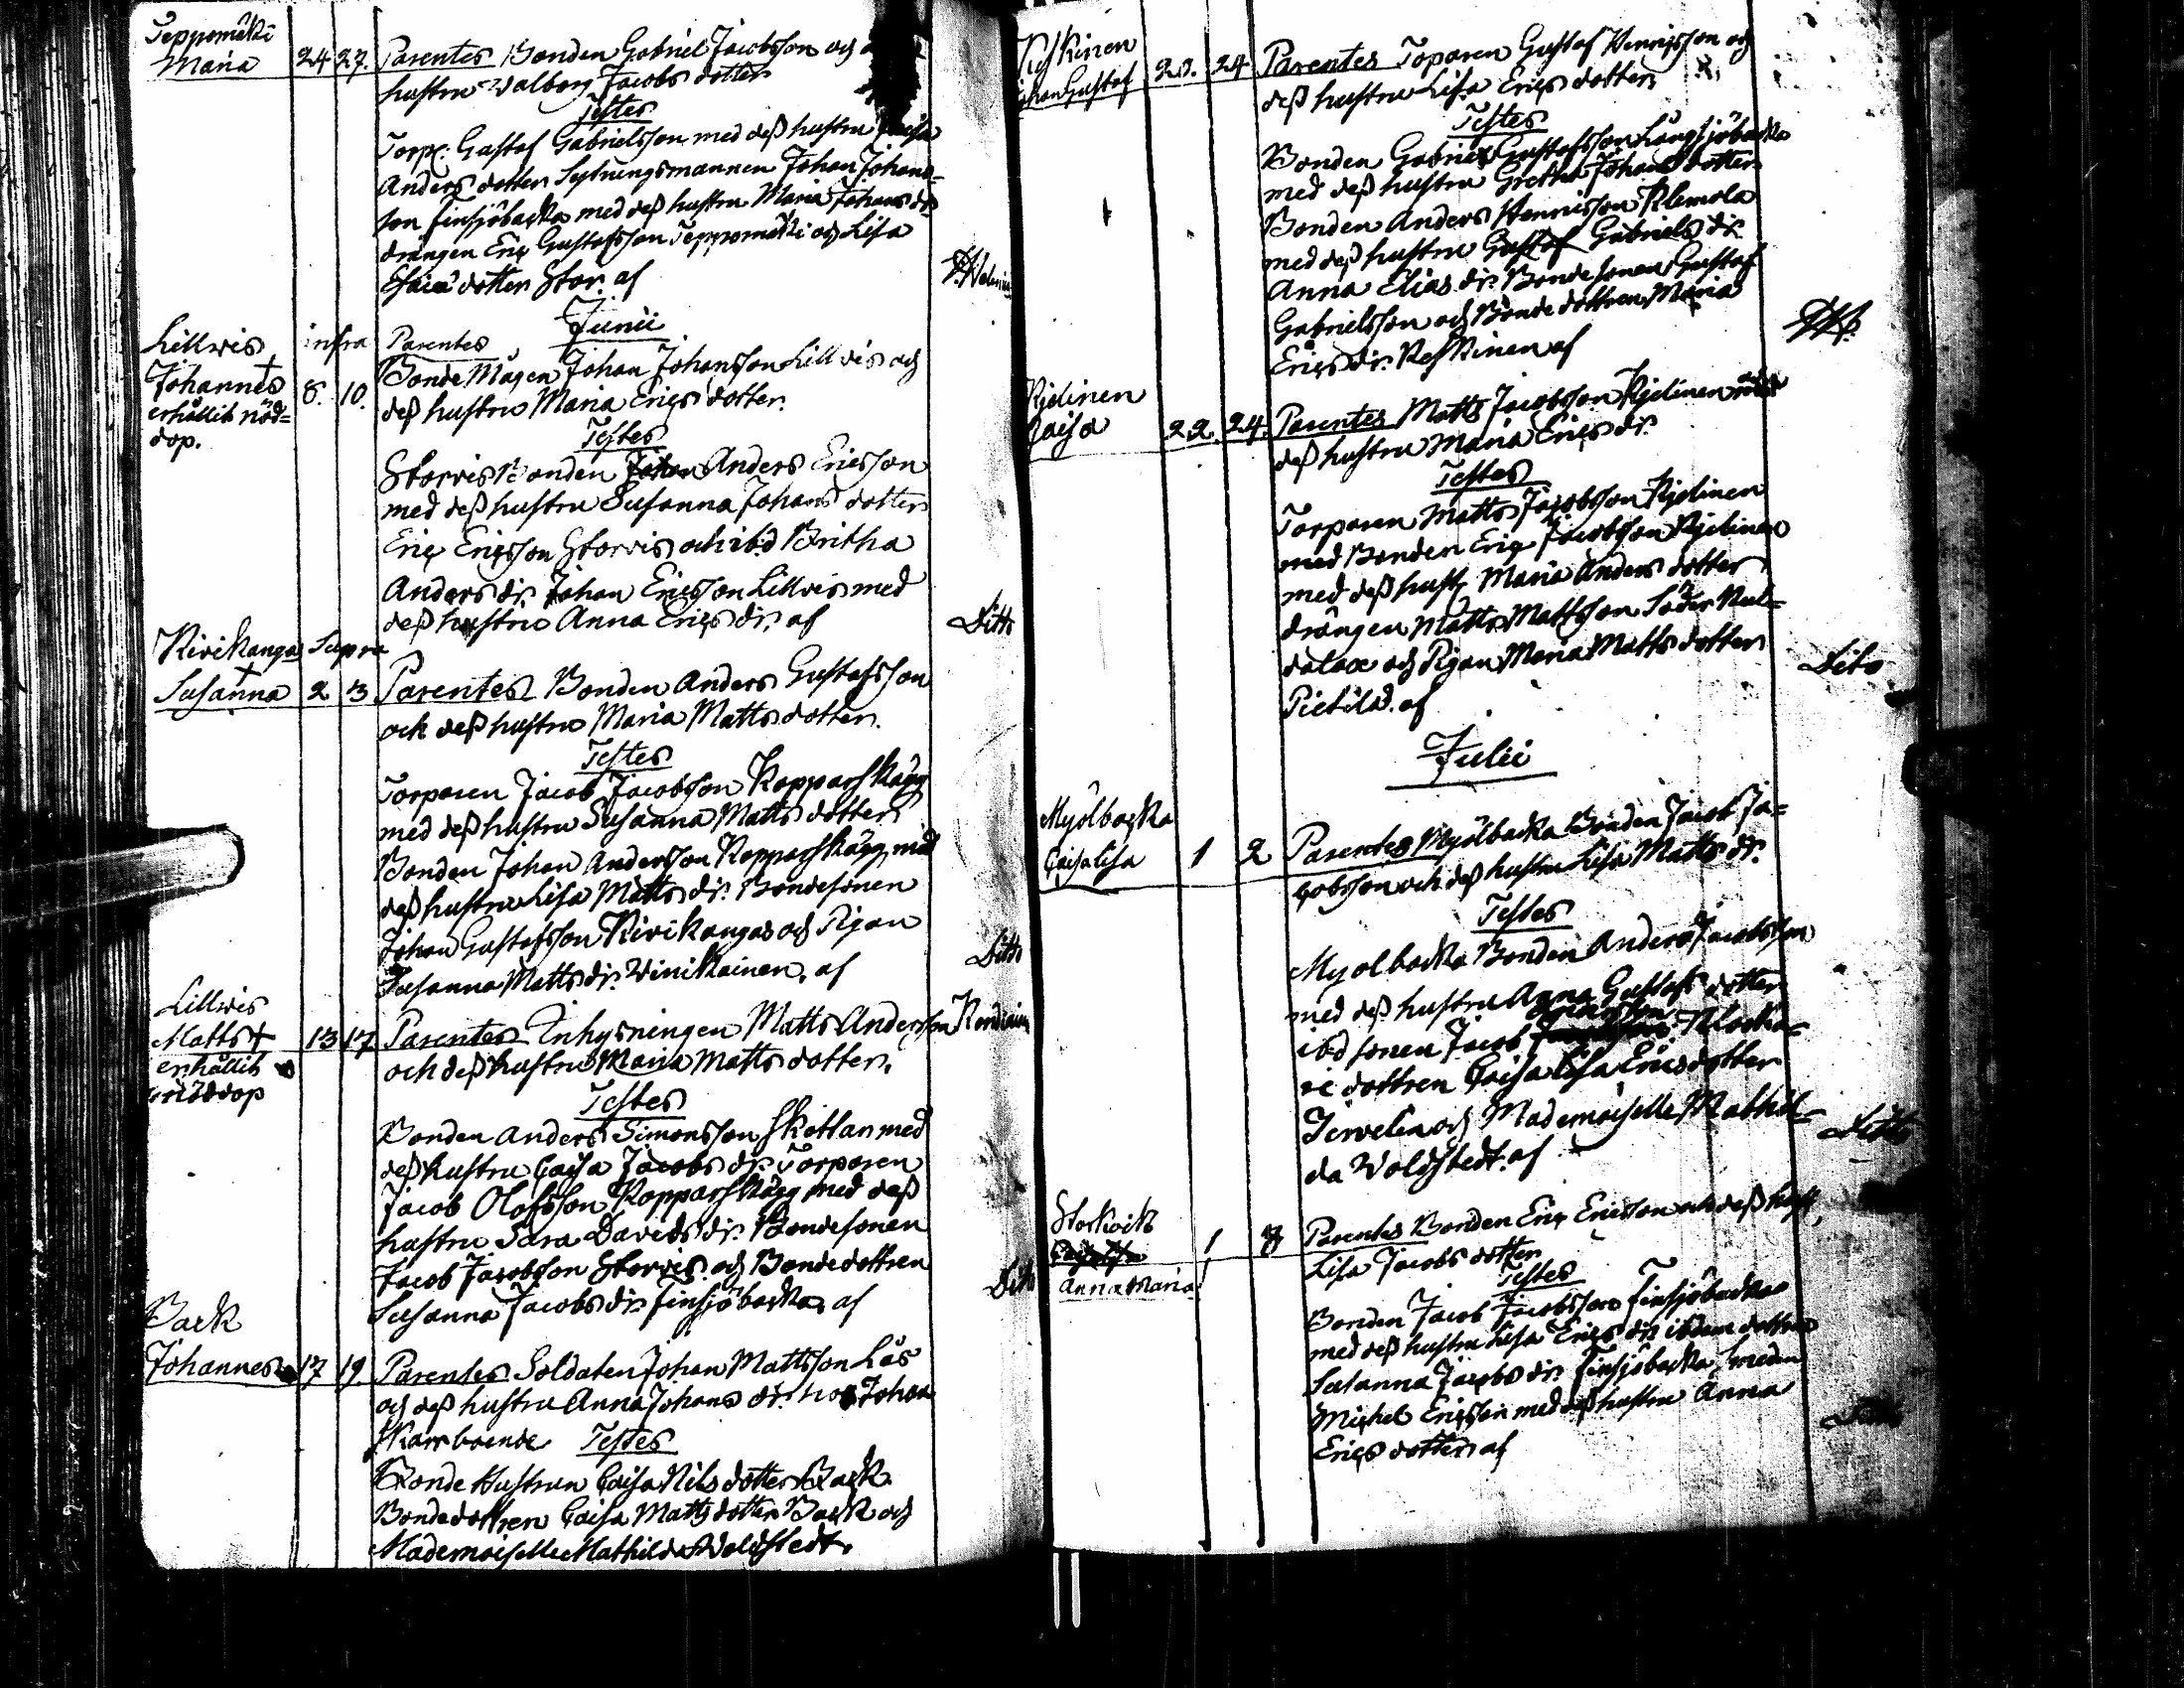 Teppomäki
Maria 24 27. Parentes Bonden Gabriel Jacobsson och
hustru Valborg Jacobs dotter
Testes
Torp. Gustaf Gabrielsson med deß hustru Caisa
Anders dotter Sextningsmannen Johan Johans-
son Finsjöbacka med deß hustru Maria Johans dr
drängen Eric Gustafsson Teppomäki och Lisa
Esaiæ dotter Stor. af
Junii
Lillvis infra Parentes
Johannes † 8. 10. Bonde Mågen Johan Johansson Lillvis och
erhållit nöd- deß hustru Maria Erics dotter.
dop.
Testes
Storvis Bonden Johan Anders Ericsson
med deß hustru Susanna Johans dotter
Eric Ericsson Storvis och ibd Britha
Anders dr. Johan Ericsson Lillvis med
deß hustru Anna Erics dr. af Ditto
Kivikangas Supra
Susanna † 2 3 Parentes Bonden Anders Gustafsson
och deß hustru Maria Matts dotter.
Testes
Torparen Jacob Jacobsson Kopparskägg
med deß hustru Susanna Matts dotter
Bonden Johan Andersson Kopparskägg med
deß hustru Lisa Matts dr. Bondesonen
Johan Gustafsson Kivikangas och Pigan
Susanna Matts dr. Vinikainen. af Ditto
Lillvis
Matts † 13 17 Parentes Inhysningen Matts Andersson
erhållit och deß hustru Maria Matts dotter.
nöddop
Testes
Bonden Anders Simonsson Skottar med
deß hustru Caisa Jacobs dr. Torparen
Jacob Olofsson Kopparskägg med deß
hustru Sara Davids dr. Bondesonen
Jacob Jacobsson Storvis och Bondedottren
Susanna Jacobs dr. Finsjöbacka af Dito
Back
Johannes 17 19. Parentes Soldaten Johan Mattsson Lås
och deß hustru Anna Johans dr. hos Johan
Testes
Bonde Hustrun Caisa Nils dotter Back
Bondedottren Caisa Matts dotter Back och
Mademoiselle Mathilda Woldstedt.
Keskinen
Johan Gustaf 20. 24 Parentes Toparen Gustaf Henricsson och
deß hustru Lisa Erics dotter
Testes
Bonden Gabriel Gustafsson Långsjöbacka
med deß hustru Gretha Johans dotter
Bonden Anders Hennisson Klemola
med deß hustru Gustaf Gabriels dr.
Anna Elias dr. Bondesonen Gustaf
Gabrielsson och Bonde dottren Maria
Erics dr. Keskinen af
Kjelinen
Caisa 22. 24. Parentes Matts Jacobsson Kjelinen och
deß hustru Maria Erics dr.
Testes
Torparen Matts Jacobsson Kjelinen
med Bonden Eric Jacobsson Kjelinen
med deß hust. Maria Anders dotter
drängen Matts Mattsson Söder Kul-
dalax och Pigan Maria Matts dotter
Pietilä. af Dito
Julii
Myölbacka
Caisa Lisa 1 2 Parentes Mjölbacka Bonden Jacob Ja-
cobsson och deß hustru Lisa Matts dr.
Testes
Myolbacka Bonden Anders Jacobsson
med deß hustru Anna Gustafs dotter
ibd sonen Jacob Klocka-
re dottren Caisa Lisa Erics dotter
Jervelin och Mademoiselle Mathil-
da Woldstedt. af Ditto
Storkvik
Anna Maria 1 8 Parentes Bonden Eric Ericsson och deß hust.
Lisa Jacobs dotter
Testes
Bonden Jacob Jacobsson Finsjöbacka
med deß hustru Lisa Erics dr. ibdem dottren
Susanna Jacobs dr. Finsjöbacka, smeden
Michel Ericsson med deß hustru Anna
Erics dotter af